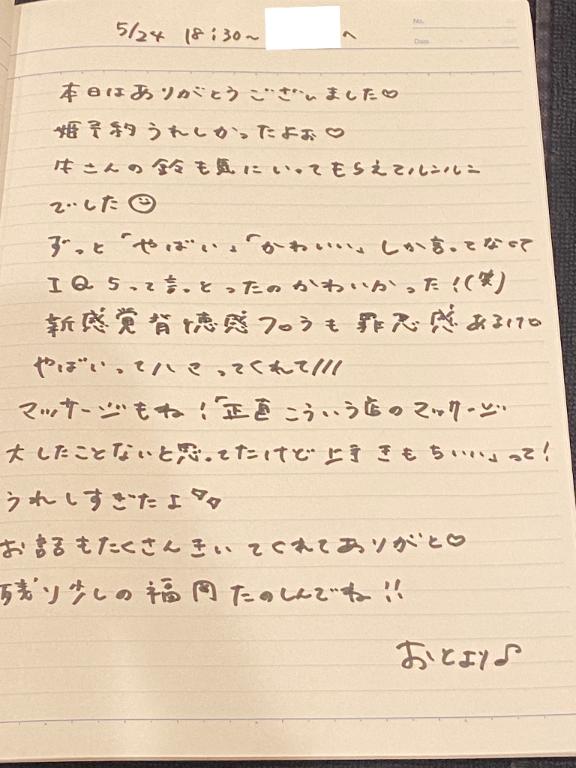 No.
Date
5/24 18:30~ へ
本日はありがとうございました♡
姫予約うれしかったよぉ♡
牛さんの鈴も気にいってもらえてルンルン
でした☺
ずっと「やばい」「かわいい」しか言ってなくて
IQ5って言っとったのかわいかった!(笑)
新感覚背徳感フロうも罪悪感あるけど
やばいってハマってくれて///
マッサージもね!「正直こういう店のマッサージ
大したことないと思ってたけど上手きもちいい」って!
うれしすぎたよ
お話もたくさんきいてくれてありがと♡
残り少しの福岡たのしんでね!!
おとより♪